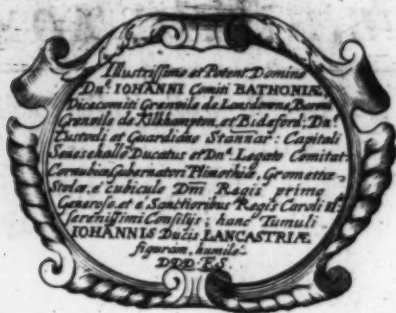 Illustrissimo et Potent. Domino
Dn.º IOHANNI Comiti BATHONIÆ,
Vicecomiti Grenvile de Lansdowne, Baroni
Grenvile de Kilkhampton, et Bideford; Dn.º
Custodi et Guardiano Stannar: Capitali
Seneschallo Ducatus et Dn.º Legato Comitat.
Cornubiæ, Gubernatori Plimothiæ, Gromettæ
Stolæ, e cubiculo Dñi Regis primo
Generoso, et e Sanctioribus Regis Caroli IIdi
serenissimi Consilijs; hanc Tumuli
IOHANNIS Ducis LANCASTRIÆ
figuram, humile.
D.D.D. F.S.